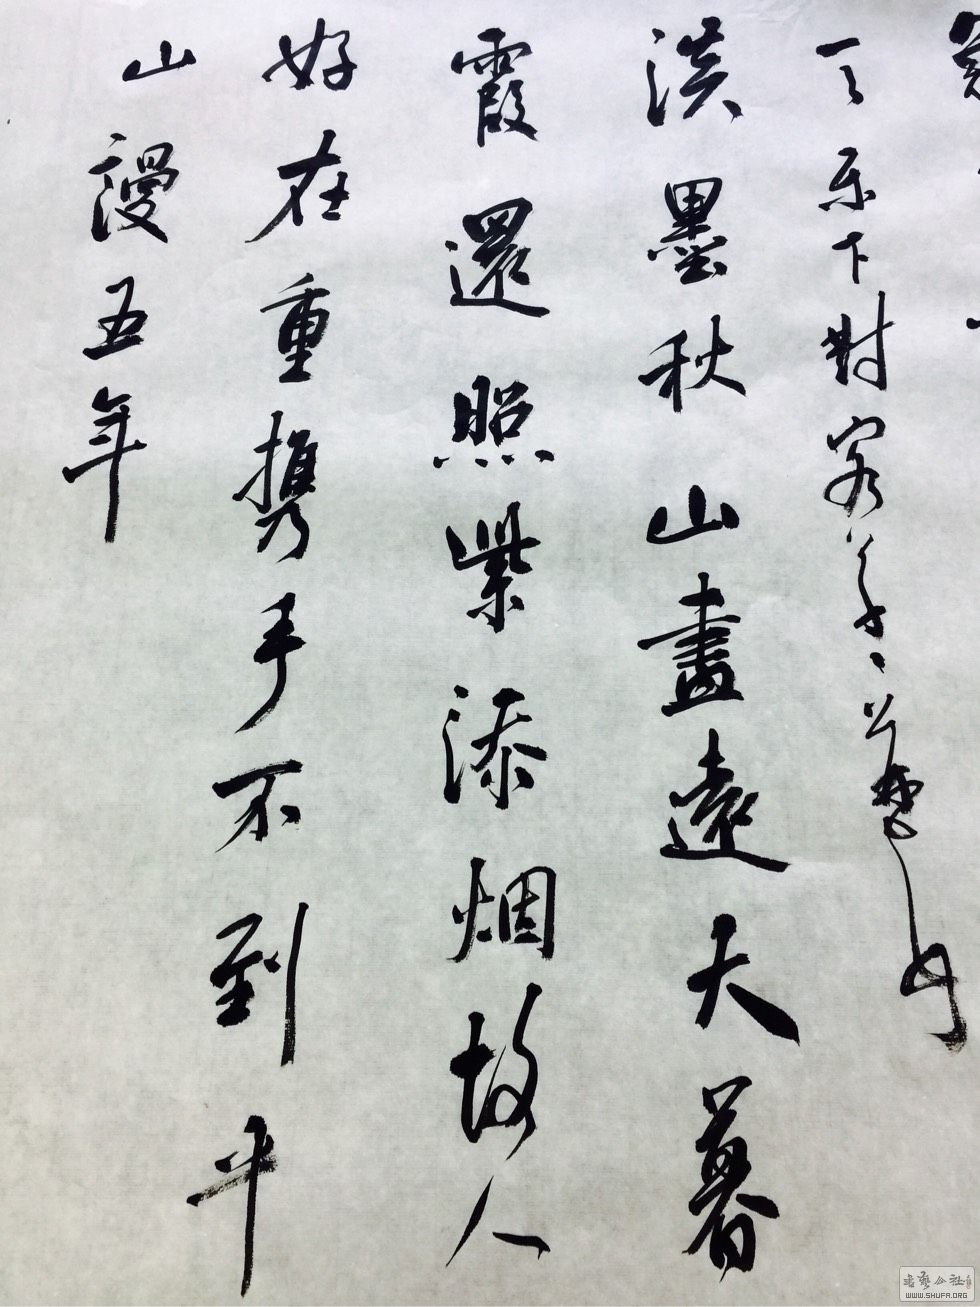 下對客
淡墨秋山畫遠天暮
霞還照紫添烟故人
好在重携手不到平
山謾五年
书艺公社
WWW.SHUFA.ORG